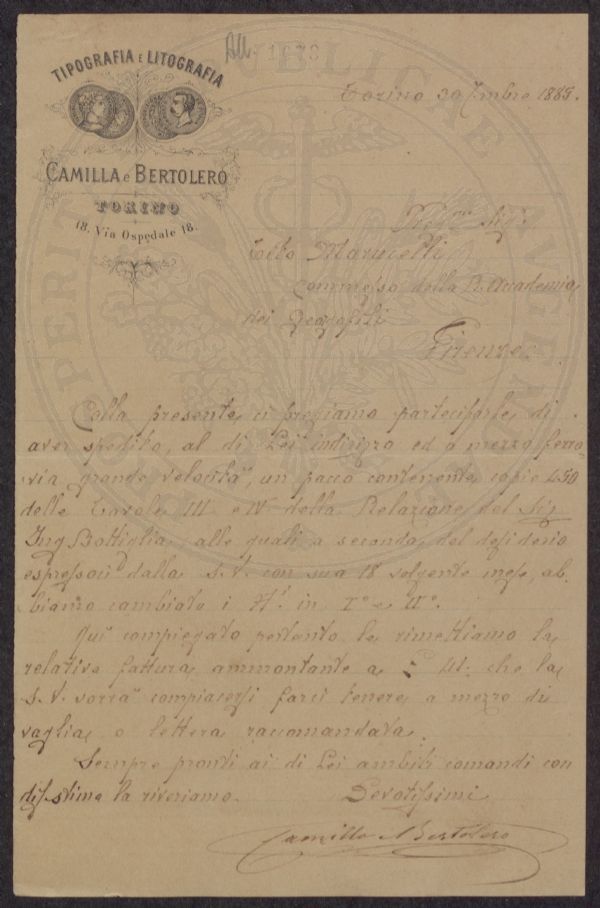 All. 1673
TIPOGRAFIA E LITOGRAFIA
CAMILLA e BERTOLERO
TORINO
18, Via Ospedale 18.
Torino 30 7mbre 1885.
Preg.mo Sig.
Tito Marucelli
Commesso della R. Accademia
dei Georgofili
Firenze
Colla presente ci pregiamo parteciparle di
aver spedito, al di Lei indirizzo ed a mezzo ferro-
via grande velocità, un pacco contenente copie 450
delle Tavole III e IV della Relazione del Sig.
Ing Battiglia, alle quali a seconda del desiderio
espressoci dalla S.V. con sua 18 volgente mese, ab-
biamo cambiato i N.i in I.o e II.o
Qui compiegato pertanto le rimettiamo la
relativa fattura ammontante a che la
S.V. vorrà compiacersi farci tenere a mezzo di
vaglia o lettera raccomandata.
Sempre pronti ai di Lei ambiti comandi con
dis. stima la riveriamo. Devotissimi
Camilla Bertolero